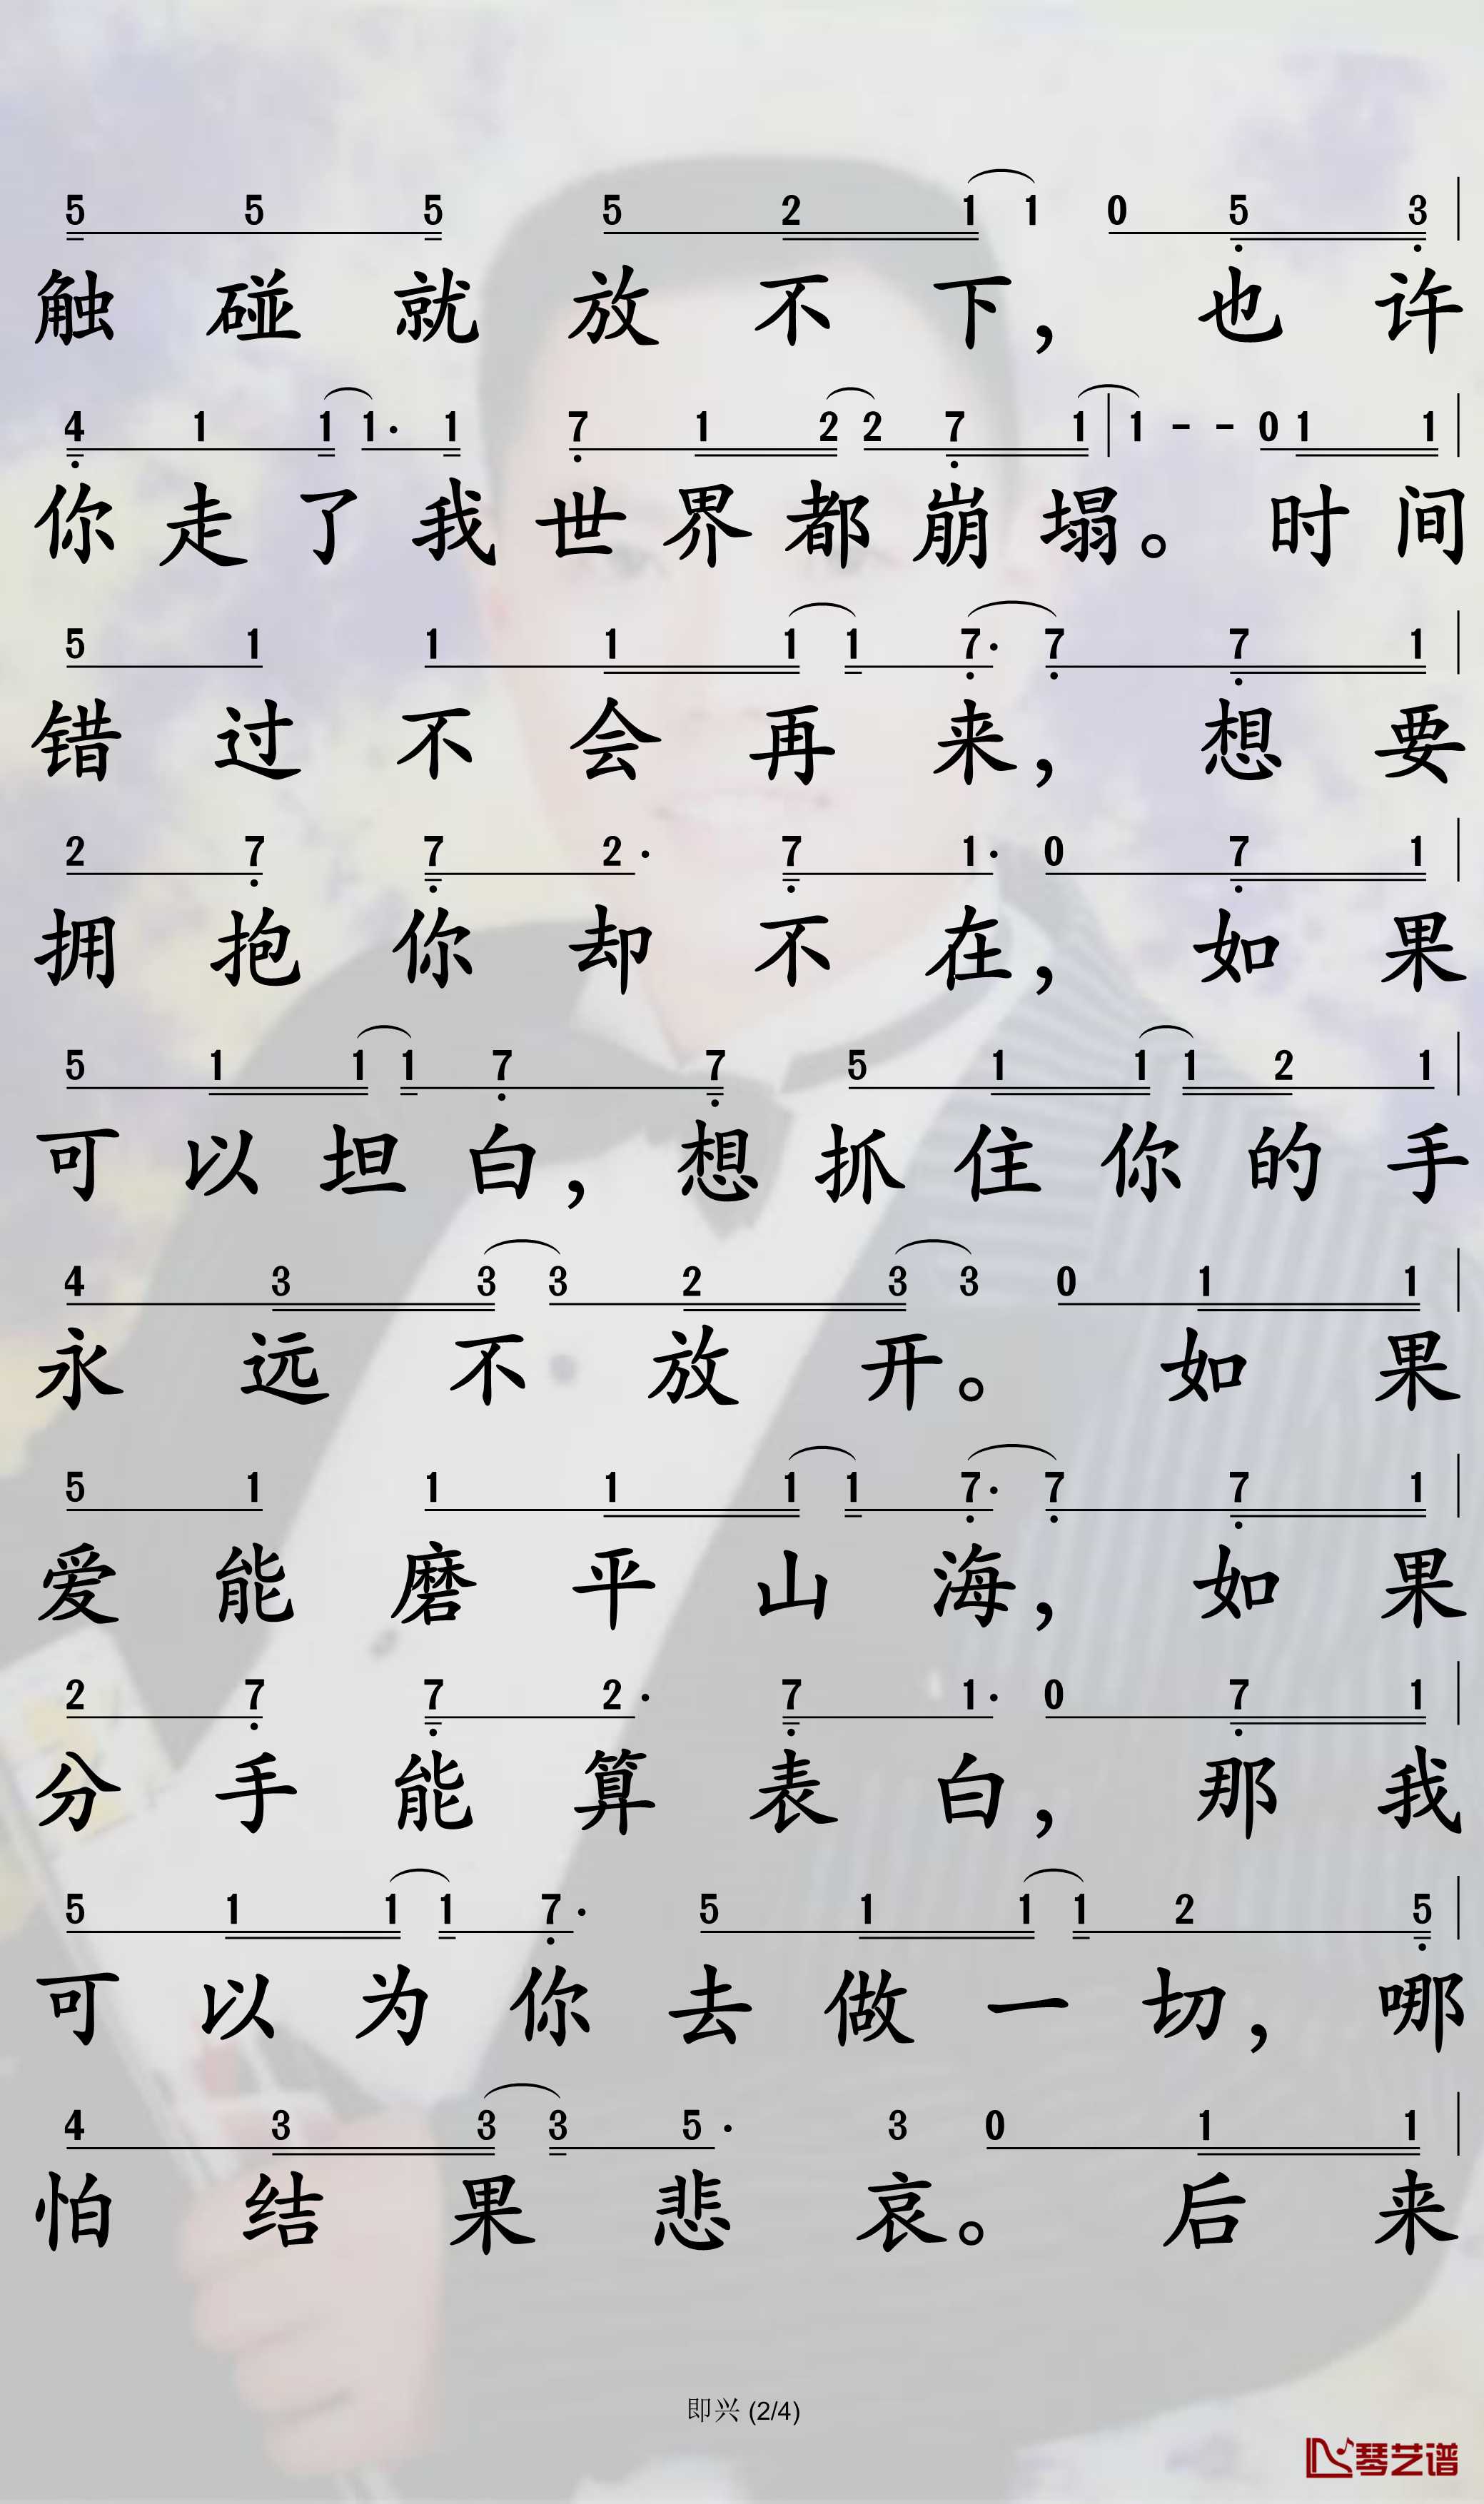 5 5 5 5 2 1 1 0 5 3
触碰就放不下，也许
4 1 1 1· 1 7 1 2 2 7 1 1 - - 0 1 1
你走了我世界都崩塌。时间
5 1 1 1 1 1 7· 7 7 1
错过不会再来，想要
2 7 7 2· 7 1· 0 7 1
拥抱你却不在，如果
5 1 1 1 7 7 5 1 1 1 2 1
可以坦白，想抓住你的手
4 3 3 3 2 3 3 0 1 1
永远不放开。如果
5 1 1 1 1 1 7· 7 7 1
爱能磨平山海，如果
2 7 7 2· 7 1· 0 7 1
分手能算表白，那我
5 1 1 1 7· 5 1 1 1 2 5
可以为你去做一切，哪
4 3 3 3 5· 3 0 1 1
怕结果悲哀。后来
即兴 (2/4)
琴艺谱